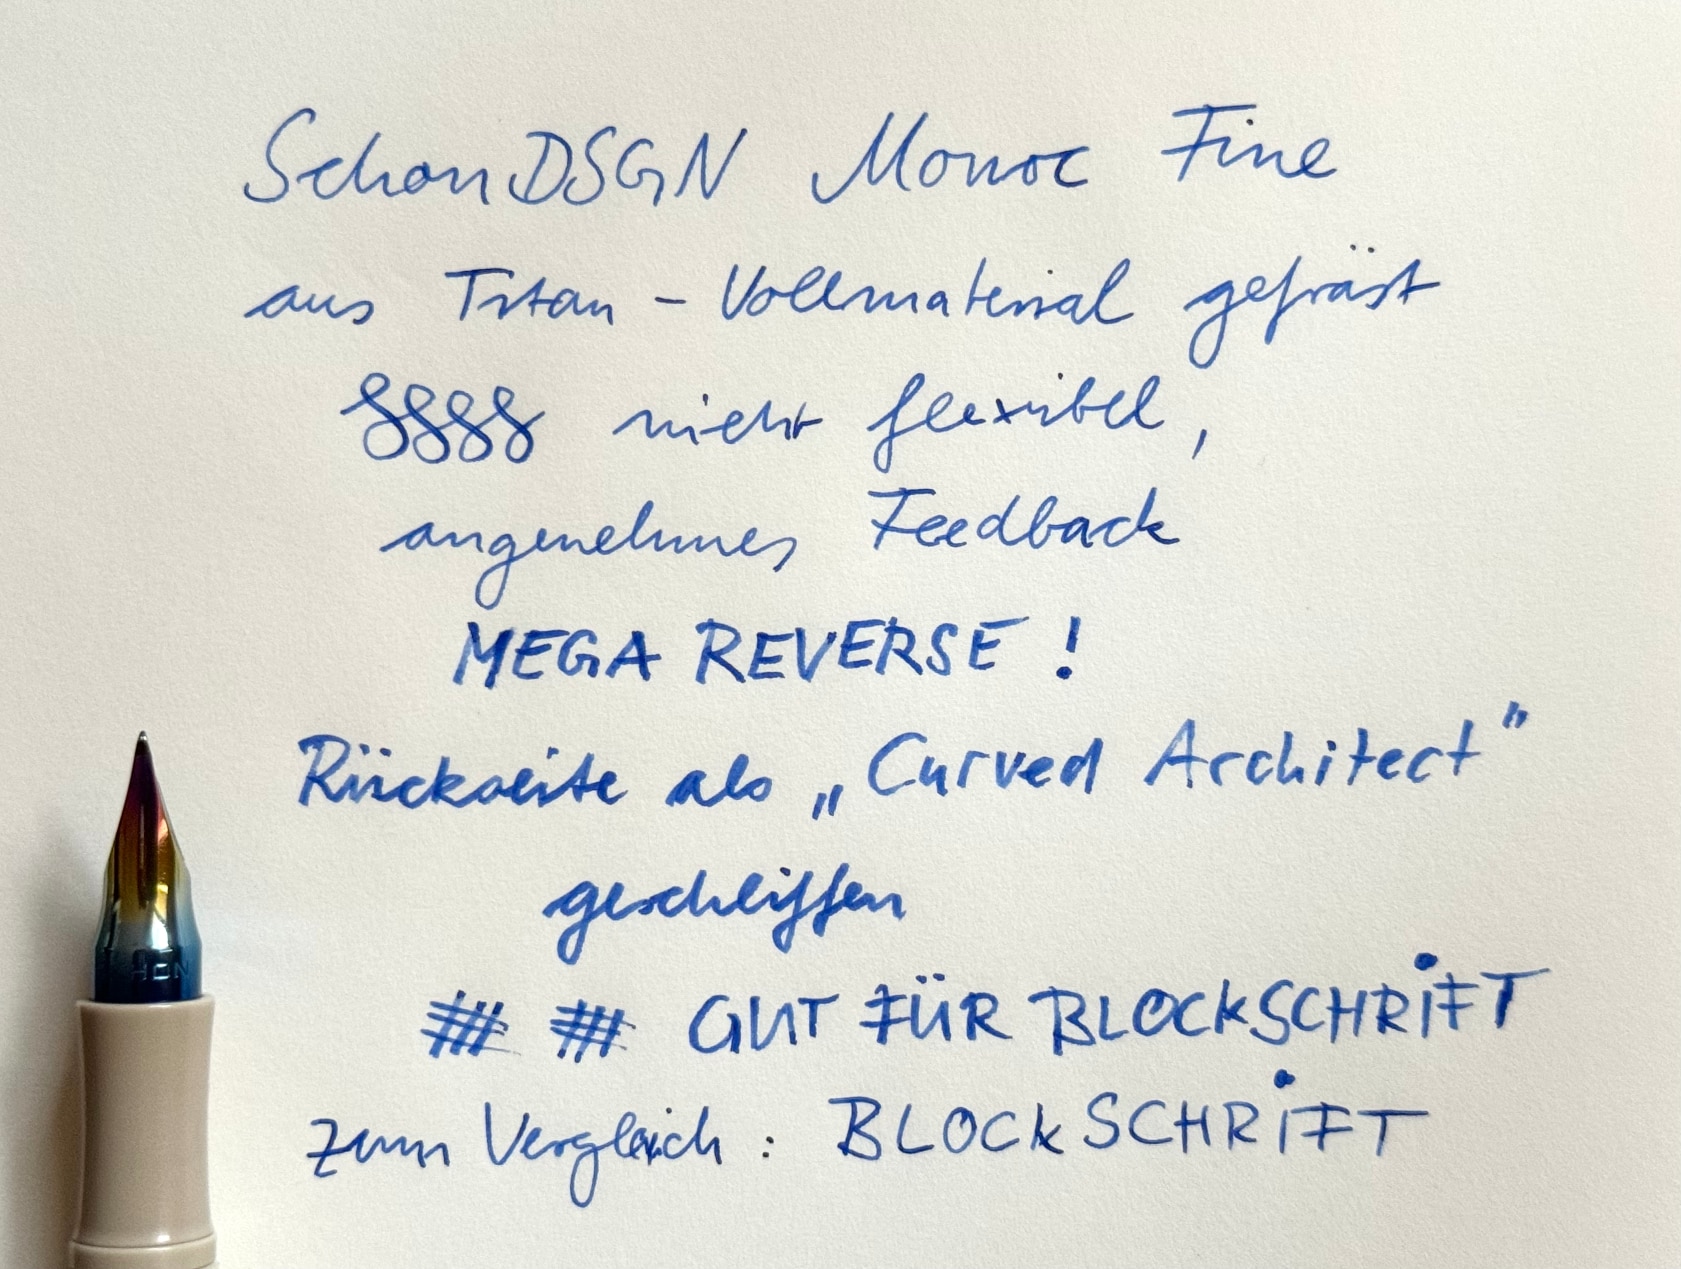 SchonDSGN Monoc Fine
aus Titan - Vollmaterial gefräst
nicht flexibel,
angenehmes Feedback
MEGA REVERSE !
Rückseite als „Curved Architect”
geschliffen
## ## GUT FÜR BLOCKSCHRiFT
zum Vergleich : BLOCKSCHRiFT
HON